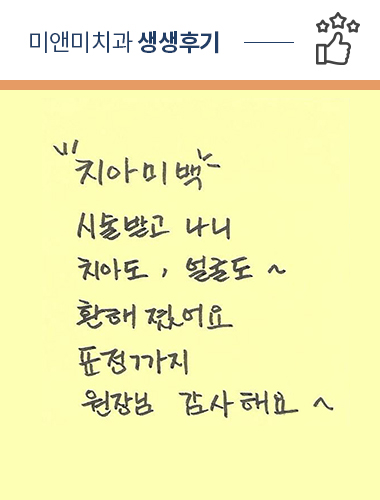 미앤미치과 생생후기
"치아미백"
시술받고 나니
치아도, 얼굴도 ~
환해졌어요
표정까지
원장님 감사해요 ~